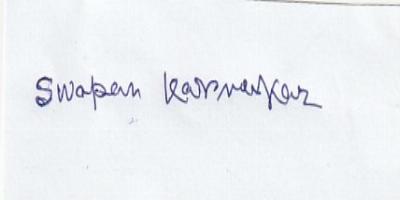 Swapan Karmakar